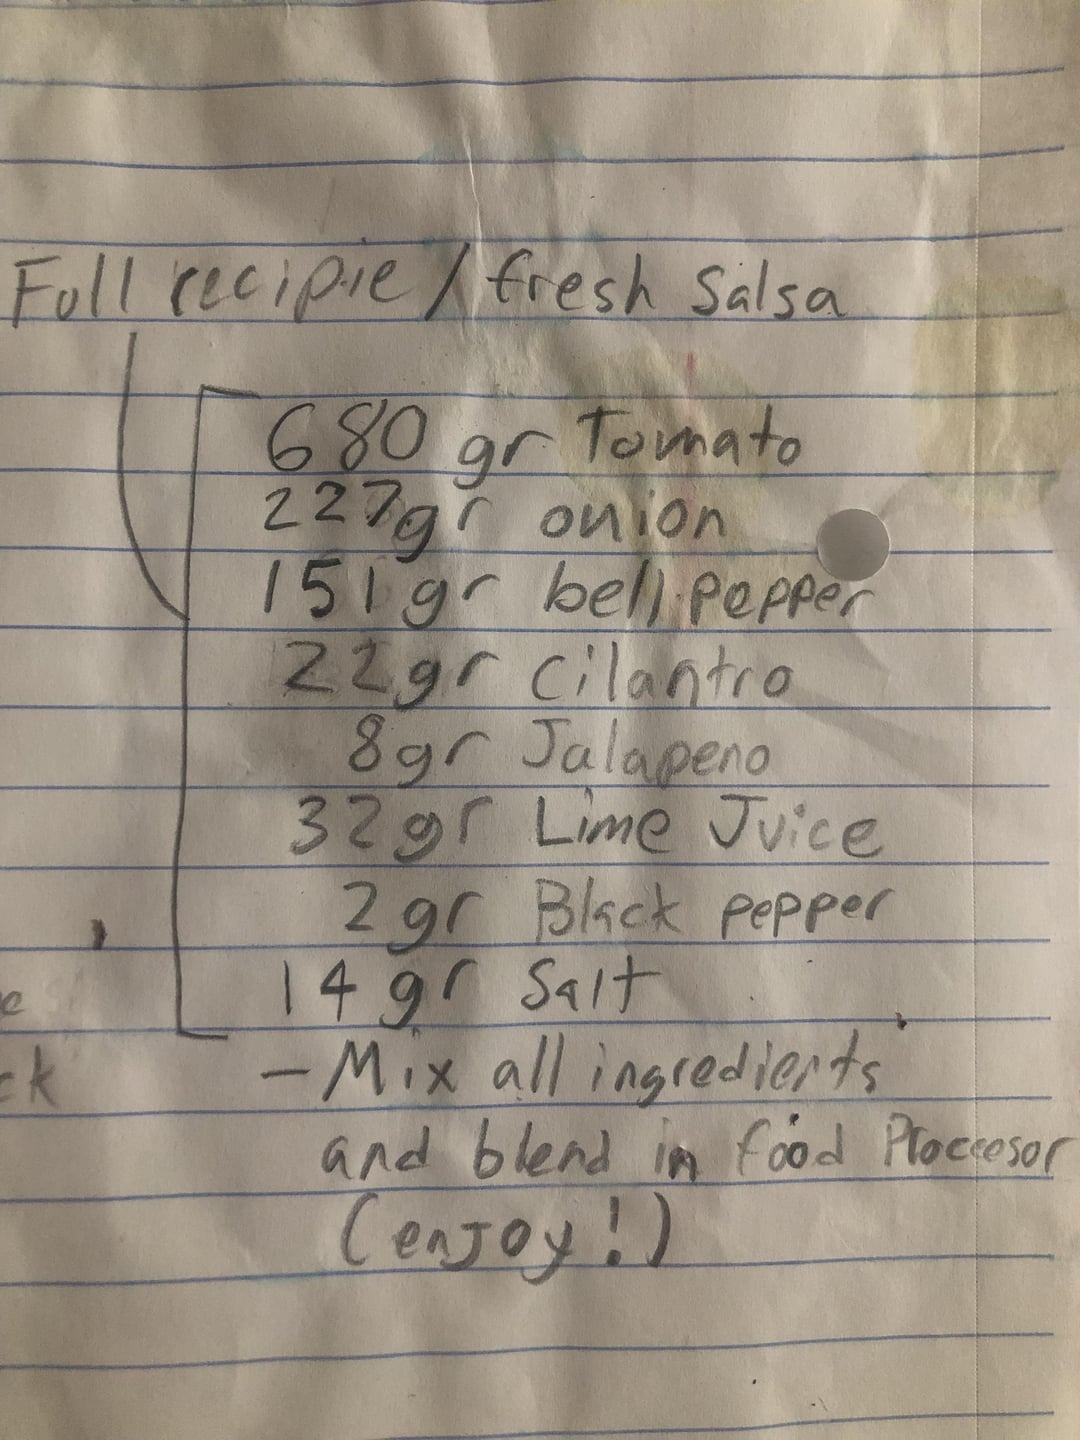 Full recipie / fresh Salsa
680 gr Tomato
227gr onion
151 gr bell pepper
22gr Cilantro
8gr Jalapeno
32gr Lime Juice
2 gr Black pepper
14 gr Salt
e
ck
- Mix all ingredients
and blend in food Proccesor
(enjoy!)